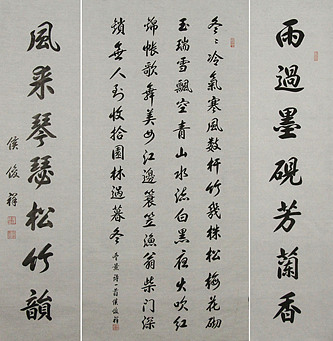 雨過墨硯芳蘭香
冬冬冷氣寒風數杆竹幾株松梅花砌
玉瑞雪飄空青山水流白黑夜火吹紅
錦帳歌舞美女江邊蓑笠漁翁柴門深
鎖無人到收拾園林過暮冬
詩一首侯俊祥
風來琴瑟松竹韻
侯俊祥